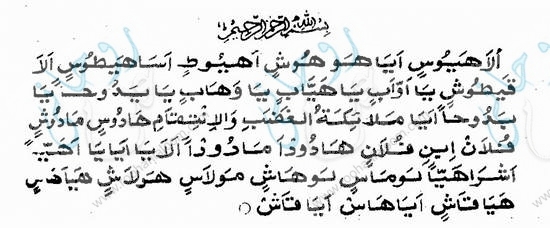 بسم الله الرحمن الرحيم
الاهيوس آيا هو هوش اهيوط اساهيطوس الا
قيطوش يا أوّاب يا هيّاب يا وهاب يا يدوحا يا
يدوحا أيا ملائكة الغضب والانتقام هادوس مادوش
فلان ابن فلان هادودا مادودا الايا ايا يا اهيا
اشراهيا لوماس لوهاش مولاس هولاش
هيا قاش ايا هاش ايا قاش